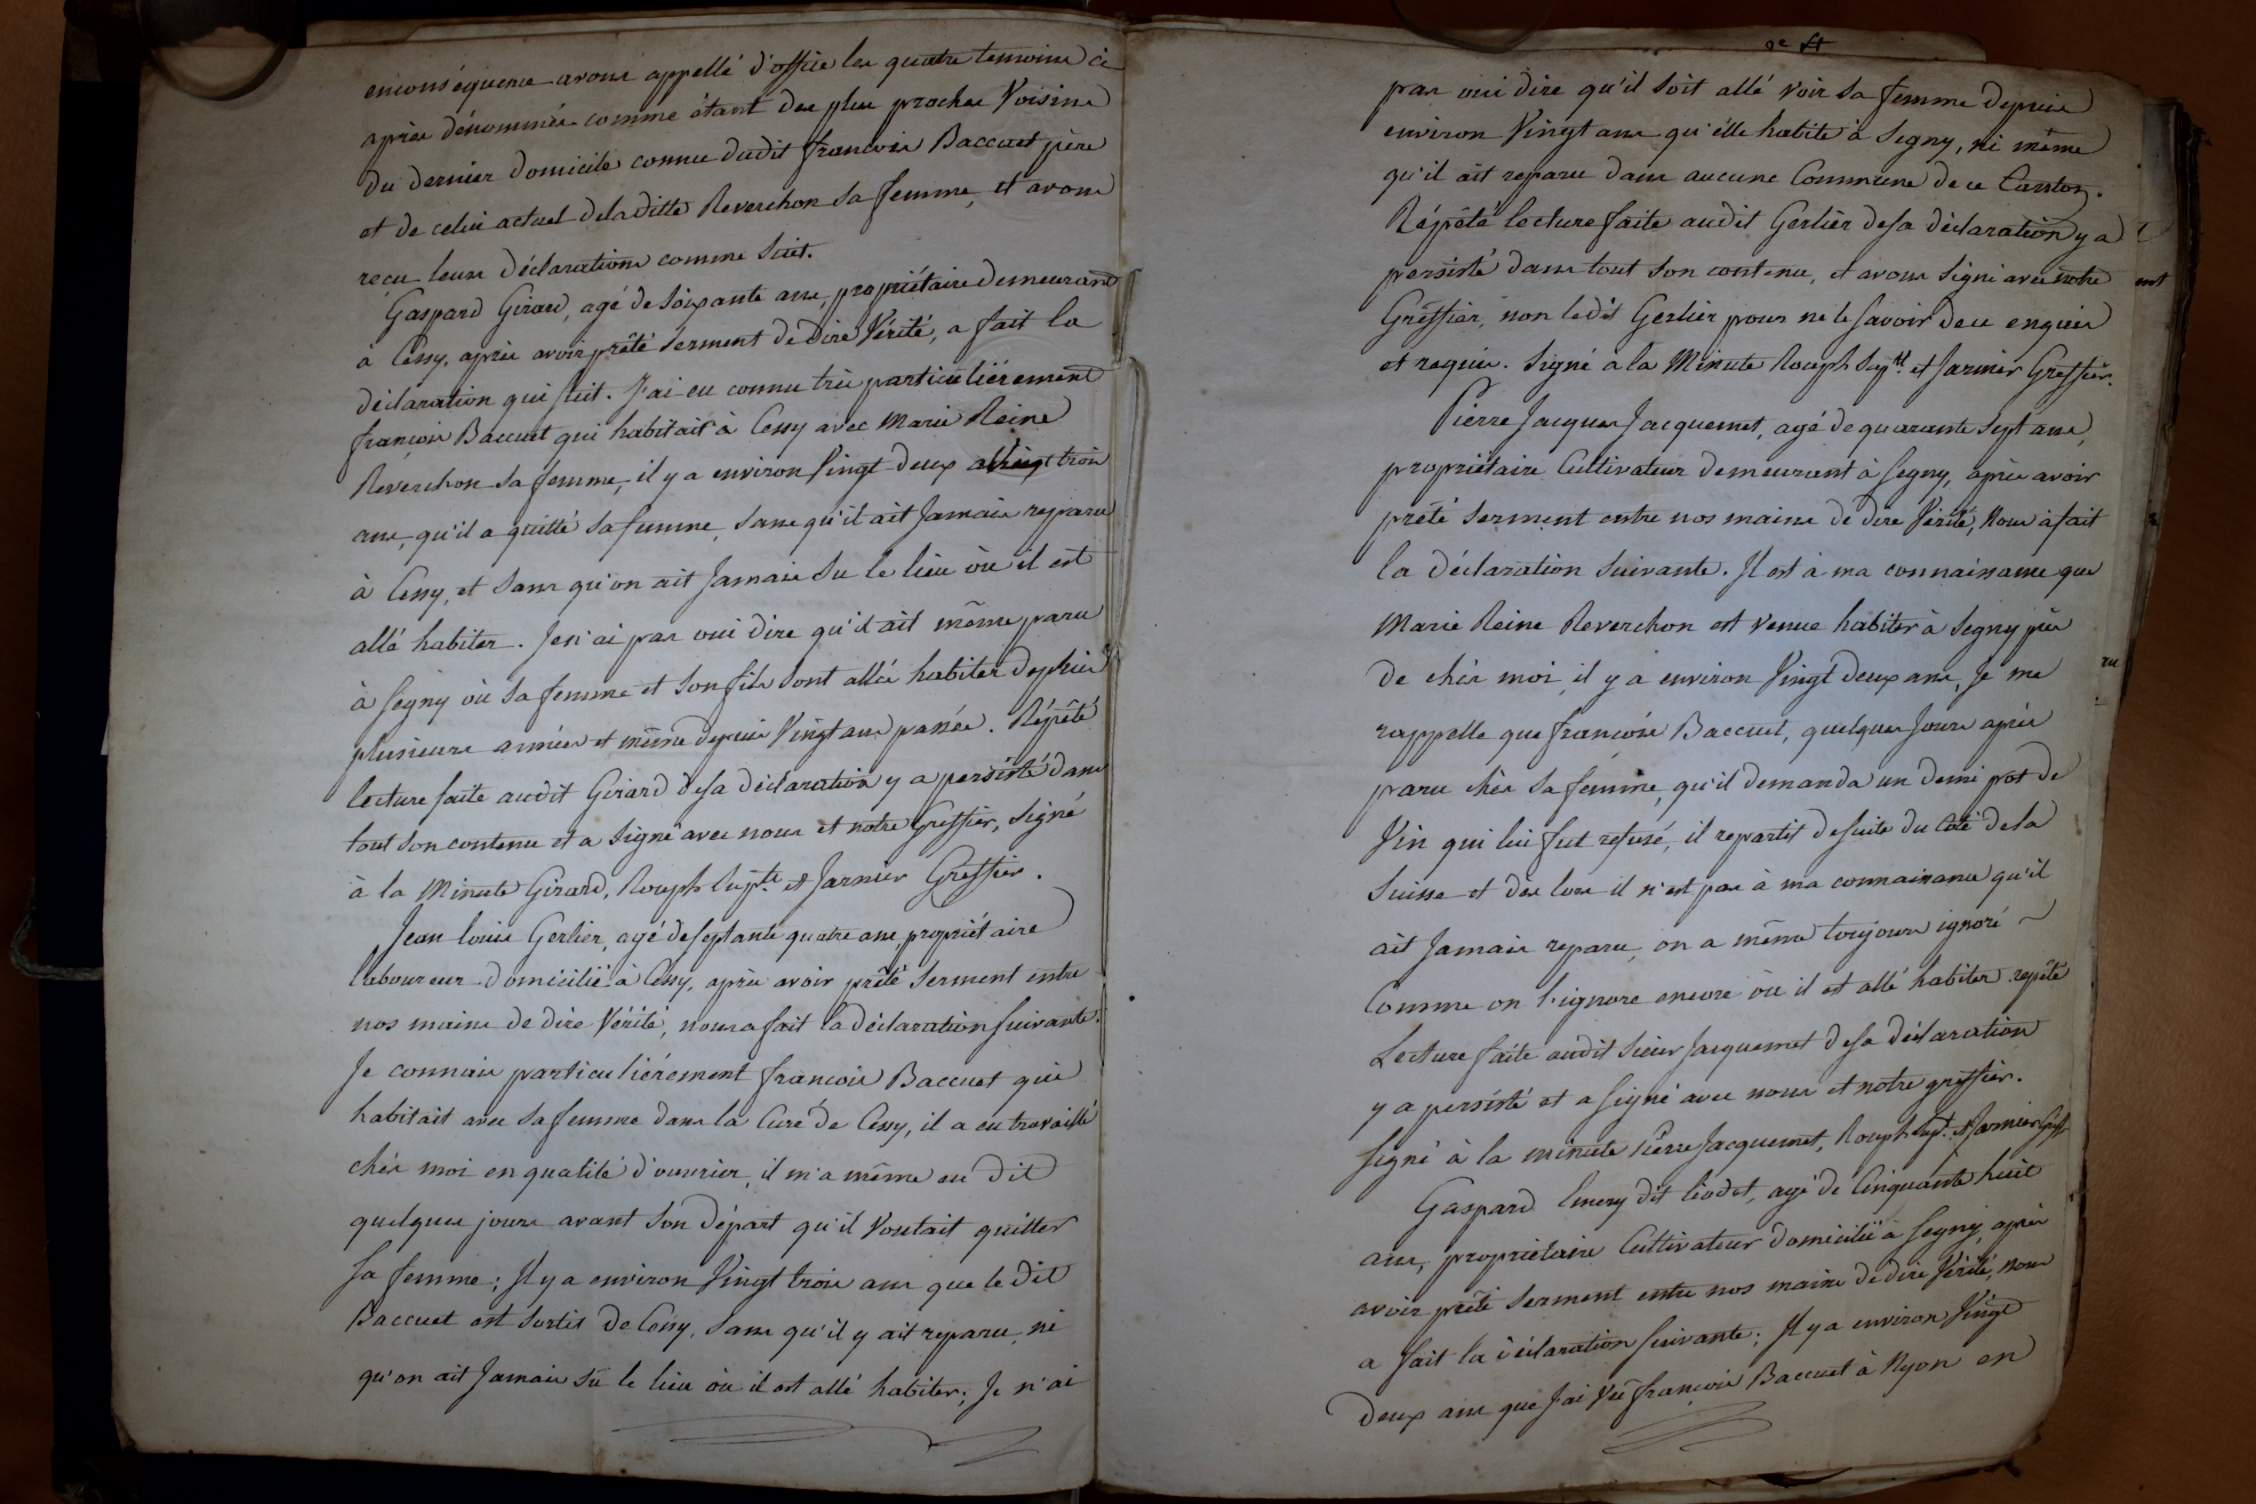 enconséquence avons appellé d'office les quatre temoins ci
après dénommés comme étant des plus proches Voisins
du dernier domicile connu dudit françois Baccuet père
et de celui actuel deladitte Reverchon sa femme, et avons
reçu leurs déclarations comme suit.
Gaspard Girard, agé de soixante ans, propriétaire demeurand
à Cessy, après avoir prêté serment de dire Vérité, a fait la
déclaration qui suit. J'ai eu connu très particulièrement
françois Baccuet qui habitait à Cessy avec Marie Reine
Reverchon sa femme, il y a environ Vingt deux à Vingt trois
ans, qu'il a quitté sa femme, sans qu'il ait Jamais reparu
à Cessy, et sans qu'on ait Jamais su le lieu où il est
allé habiter. Je n'ai pas oui dire qu'il ait même paru
à Segny où sa femme et son fils sont allés habiter depuis
plusieurs années et même depuis Vingt ans passés. Répété
lecture faite audit Girard de sa déclaration y a persisté dans
tout son contenu et a signé avec nous et notre Greffier, signé
à la Minute Girard, Rouph Supt. et Jarnier Greffier.
Jean louis Gerlier, agé de septante quatre ans, propriétaire
laboureur domicilié à Cessy, après avoir prêté serment entre
nos mains de dire Vérité, nous a fait la déclaration suivante.
Je connais particulièrement françois Baccuet qui
habitait avec sa femme dans la Cure de Cessy, il a eu travaillé
chés moi en qualité d'ouvrier, il m'a même eu dit
quelques jours avant son départ qu'il voulait quitter
sa femme; Il y a environ Vingt trois ans que le dit
Baccuet est sortis de Cessy, sans qu'il y ait reparu, ni
qu'on ait Jamais sü le lieu où il est allé habiter; Je n'ai
pas oui dire qu'il soit allé voir sa femme depuis
environ Vingt ans qu'elle habite à Segny, ni même
qu'il ait reparu dans aucune Commune de ce Canton.
Répété lecture faite audit Gerlier de sa déclaration y a
persisté dans tout son contenu, et avons signé avec notre
Greffier, non ledit Gerlier pour ne le savoir de ce enquis
et requis. Signé à la Minute Rouph Supt. et Jarnier Greffier.
Pierre Jacques Jacquemet, agé de quarante sept ans,
propriétaire Cultivateur demeurant à Segny, après avoir
prêté serment entre nos mains de dire Vérité, Nous à fait
la déclaration suivante. Il est à ma connaissance que
Marie Reine Reverchon est venue habiter à Segny près
de chés moi, il y a environ Vingt deux ans, Je me
rappelle que françois Baccuet, quelques Jours après
paru chés sa femme, qu'il demanda un demi pot de
Vin qui lui fut refusé, il repartit de suite du Coté de la
Suisse et dès lors il n'est pas à ma connaissance qu'il
ait Jamais reparu, on a même toujours ignoré
Comme on l'ignore encore où il est allé habiter. repété
Lecture faite audit Sieur Jacquemet de sa déclaration
y a persisté et a signé avec nous et notre greffier.
Signé à la minute Pierre Jacquemet, Rouph Supt. et Jarnier Greff.
Gaspard Emery dit liodet, agé de Cinquante huit
ans, propriétaire Cultivateur domicilié à Segny, après
avoir prêté serment entre nos mains de dire Vérité, nous
a fait la déclaration suivante; Il y a environ Vingt
deux ans que J'ai Vû françois Baccuet à Nyon en